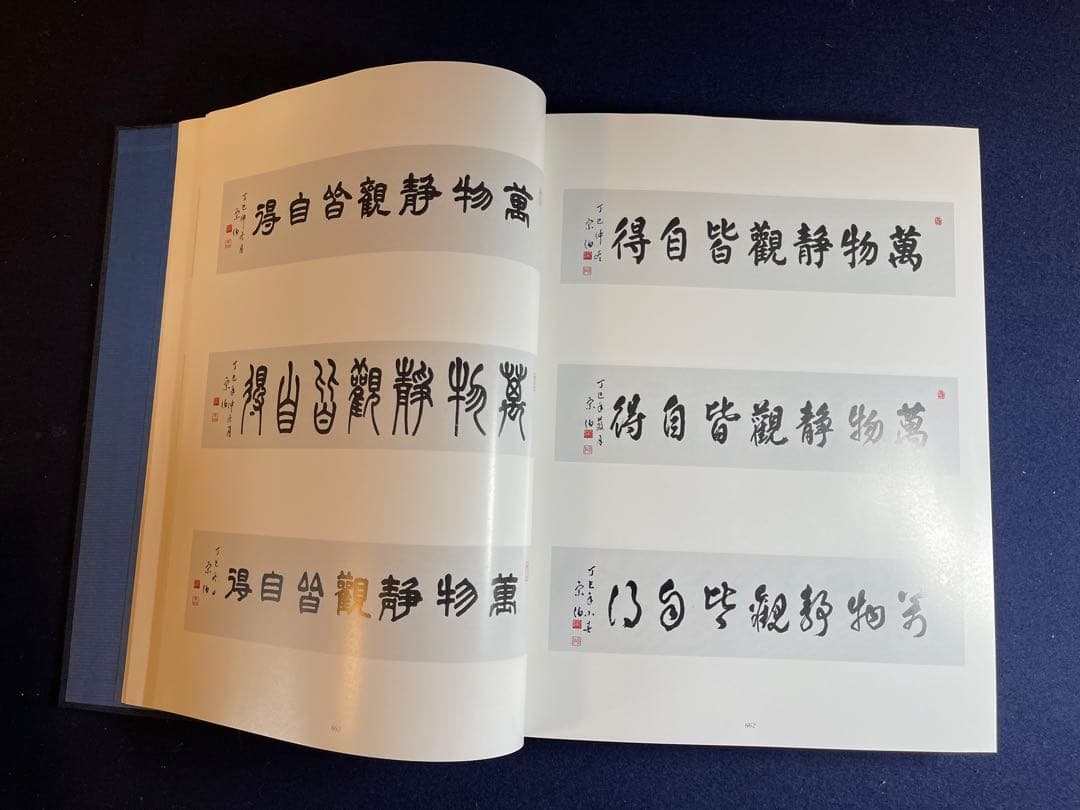 萬物静觀皆自得
丁巳仲冬月
宗伯
萬物静觀皆自得
丁巳年仲冬月
宗伯
萬物静觀皆自得
丁巳冬
宗伯
萬物静觀皆自得
丁巳仲冬
宗伯
萬物静觀皆自得
丁巳年月
宗伯
萬物静觀皆自得
丁巳年小春
宗伯
662